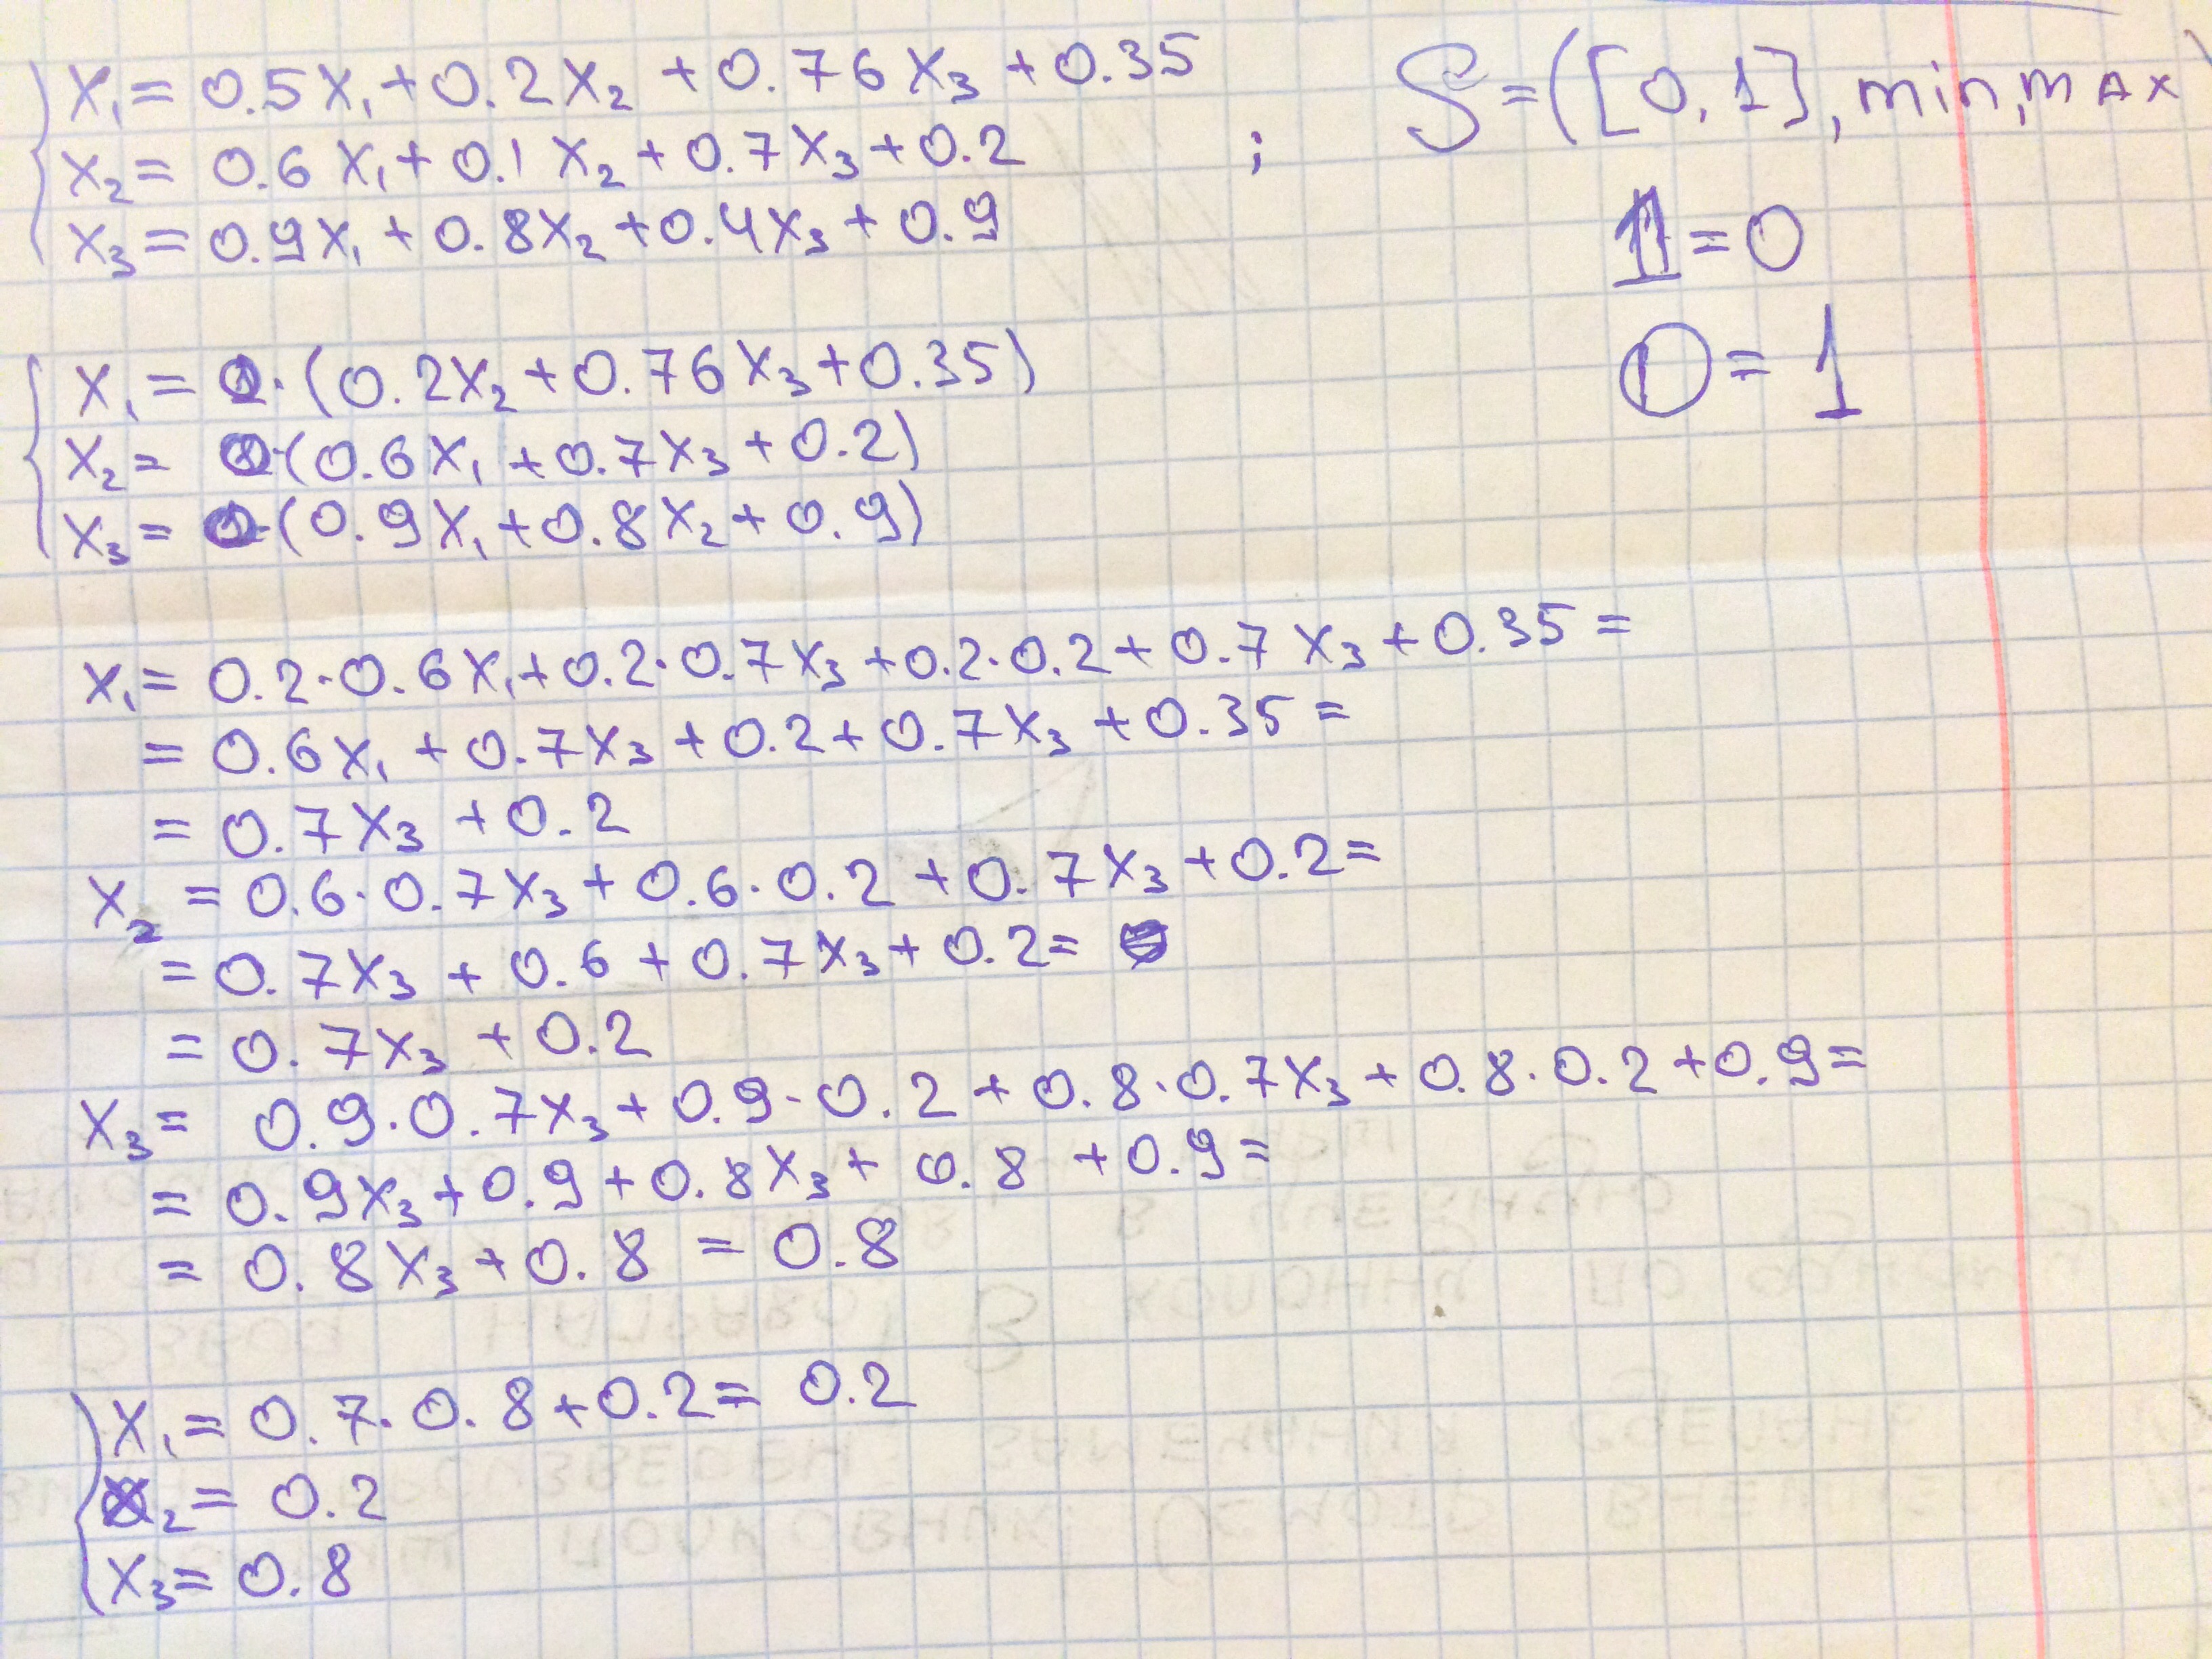 x₁ = 0.5x₁ + 0.2x₂ + 0.76x₃ + 0.35
x₂ = 0.6x₁ + 0.1x₂ + 0.7x₃ + 0.2 ;
x₃ = 0.9x₁ + 0.8x₂ + 0.4x₃ + 0.9
S = ([0, 1], min, max)
𝟙 = 0
𝟘 = 1
x₁ = 0·(0.2x₂ + 0.76x₃ + 0.35)
x₂ = 0·(0.6x₁ + 0.7x₃ + 0.2)
x₃ = 0·(0.9x₁ + 0.8x₂ + 0.9)
x₁ = 0.2·0.6x₁ + 0.2·0.7x₃ + 0.2·0.2 + 0.7x₃ + 0.35 =
= 0.6x₁ + 0.7x₃ + 0.2 + 0.7x₃ + 0.35 =
= 0.7x₃ + 0.2
x₂ = 0.6·0.7x₃ + 0.6·0.2 + 0.7x₃ + 0.2 =
= 0.7x₃ + 0.6 + 0.7x₃ + 0.2 =
= 0.7x₃ + 0.2
x₃ = 0.9·0.7x₃ + 0.9·0.2 + 0.8·0.7x₃ + 0.8·0.2 + 0.9 =
= 0.9x₃ + 0.9 + 0.8x₃ + 0.8 + 0.9 =
= 0.8x₃ + 0.8 = 0.8
x₁ = 0.7·0.8 + 0.2 = 0.2
x₂ = 0.2
x₃ = 0.8